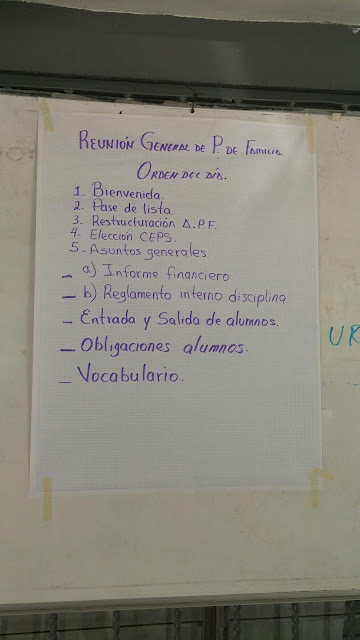 REUNIÓN GENERAL DE P. DE FAMILIA.
ORDEN DEL DÍA.
1. Bienvenida.
2. Pase de lista
3. Restructuración A.P.F.
4. Elección CEPS.
5.- Asuntos generales
_ a) Informe financiero
_ b) Reglamento interno disciplina
_ Entrada y Salida de alumnos.
_ Obligaciones alumnos.
_ Vocabulario.
UR